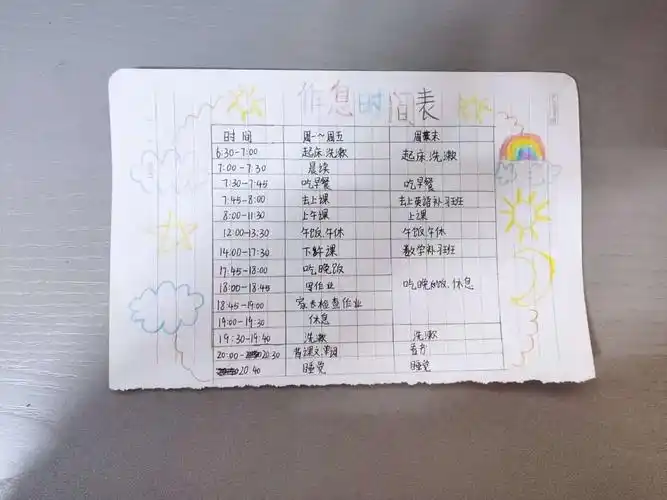 作息时间表
时间 周一~周五 周末
6:30-7:00 起床.洗漱 起床.洗漱
7:00-7:30 晨读
7:30-7:45 吃早餐 吃早餐
7:45-8:00 去上课 去上英语补习班
8:00-11:30 上午课 上课
12:00-13:30 午饭、午休 午饭、午休
14:00-17:30 下午课 数学补习班
17:45-18:00 吃晚饭 吃晚饭.休息
18:00-18:45 写作业
18:45-19:00 家长检查作业
19:00-19:30 休息
19:30-19:40 洗漱 洗漱
20:00-20:30 背课文、单词
20:40 睡觉 睡觉